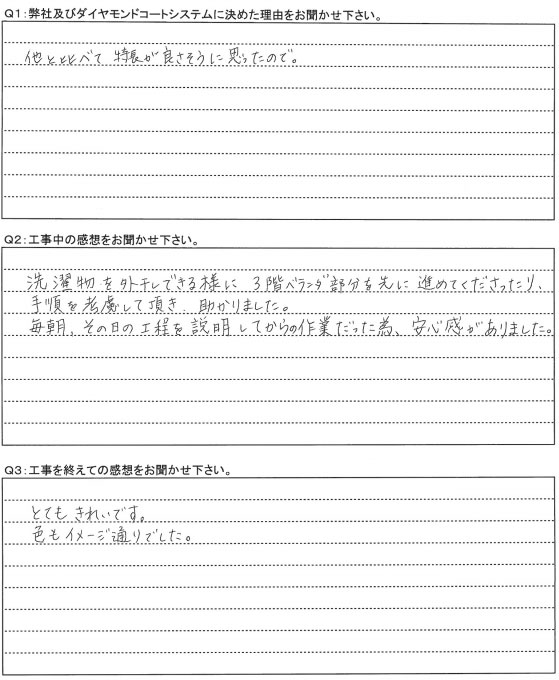 Q1:弊社及びダイヤモンドコートシステムに決めた理由をお聞かせ下さい。
他と比べて 特長が良さそうに思ったので。
Q2:工事中の感想をお聞かせ下さい。
洗濯物を外干しできる様に 3階ベランダ部分を先に進めてくださったり、
手順を考慮して頂き、助かりました。
毎朝、その日の工程を説明してからの作業だった為、安心感がありました。
Q3:工事を終えての感想をお聞かせ下さい。
とてもきれいです。
色もイメージ通りでした。